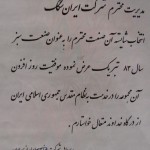 مدیریت محترم شرکت ایران خودک
انتخاب شایسته آن صنعت محترم را بعنوان صنعت سبز
سال ۸۲ تبریک عرض نموده موفقیت روز افزون
آن مجموعه را در خدمت به نظام مقدس جمهوری اسلامی ایران
از درگاه خداوند متعال خواستارم.